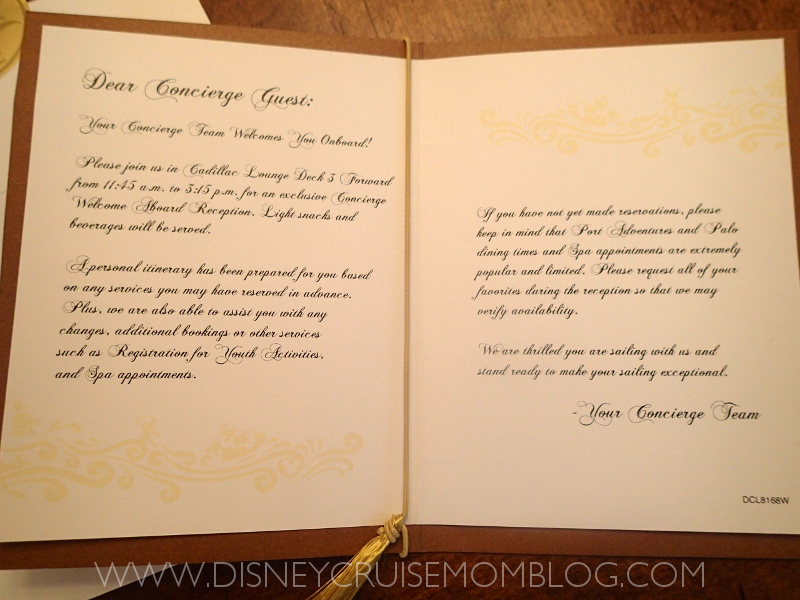 Dear Concierge Guest:
Your Concierge Team Welcomes You Onboard!
Please join us in Cadillac Lounge Deck 3 Forward
from 11:45 a.m. to 3:15 p.m. for an exclusive Concierge
Welcome Aboard Reception. Light snacks and
beverages will be served.
A personal itinerary has been prepared for you based
on any services you may have reserved in advance.
Plus, we are also able to assist you with any
changes, additional bookings or other services
such as Registration for Youth Activities,
and Spa appointments.
If you have not yet made reservations, please
keep in mind that Port Adventures and Palo
dining times and Spa appointments are extremely
popular and limited. Please request all of your
favorites during the reception so that we may
verify availability.
We are thrilled you are sailing with us and
stand ready to make your sailing exceptional.
-Your Concierge Team
DCL8168W
WWW.DISNEYCRUISEMOMBLOG.COM